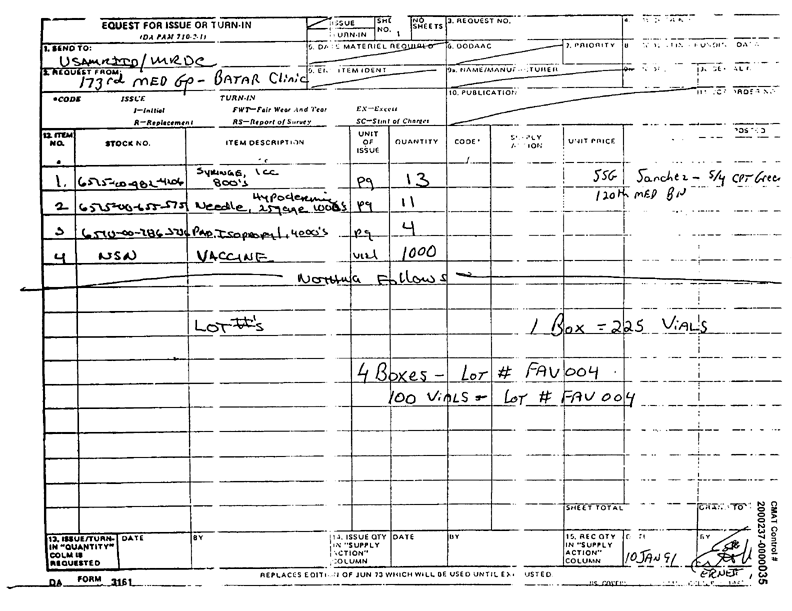 EQUEST FOR ISSUE OR TURN-IN
(DA PAM 710-2-1)
ISSUE
TURN-IN
SHE NO. 1
NO SHEETS
3. REQUEST NO.
1. SEND TO:
USAMRIID/MRDC
5. DATE MATERIEL REQUIRED
6. DODAAC
7. PRIORITY
2. REQUEST FROM:
173rd MED Gp - BATAR Clinic
9a. NAME/MANUFACTURER
10. PUBLICATION
*CODE
ISSUE
I—Initial
R—Replacement
TURN-IN
FWT—Fair Wear And Tear
RS—Report of Survey
EX—Excess
SC—Stmt of Charges
12. ITEM NO.
STOCK NO.
ITEM DESCRIPTION
UNIT OF ISSUE
QUANTITY
CODE*
SUPPLY ACTION
UNIT PRICE
POSTED
1. Syringe, 1cc 800's pg 13 SSG Sanchez - S/4 CPT Green
2 Needle, Hypodermic 1000's pg 11 120th MED BN
3 Pad, Isopropyl, 4000's pg 4
4 NSN VACCINE vial 1000
Nothing Follows
LOT #'s 1 Box = 225 VIALS
4 Boxes - Lot # FAV004
100 VIALS = Lot # FAV004
SHEET TOTAL
13. ISSUE/TURN-IN "QUANTITY" COLM IS REQUESTED
DATE
BY
14. ISSUE QTY IN "SUPPLY ACTION" COLUMN
DATE
BY
15. REC QTY IN "SUPPLY ACTION" COLUMN
10 JAN 91
BY
DA FORM 3161
REPLACES EDITION OF JUN 73 WHICH WILL BE USED UNTIL EXHAUSTED
CMAT Control #
2000237-0000035